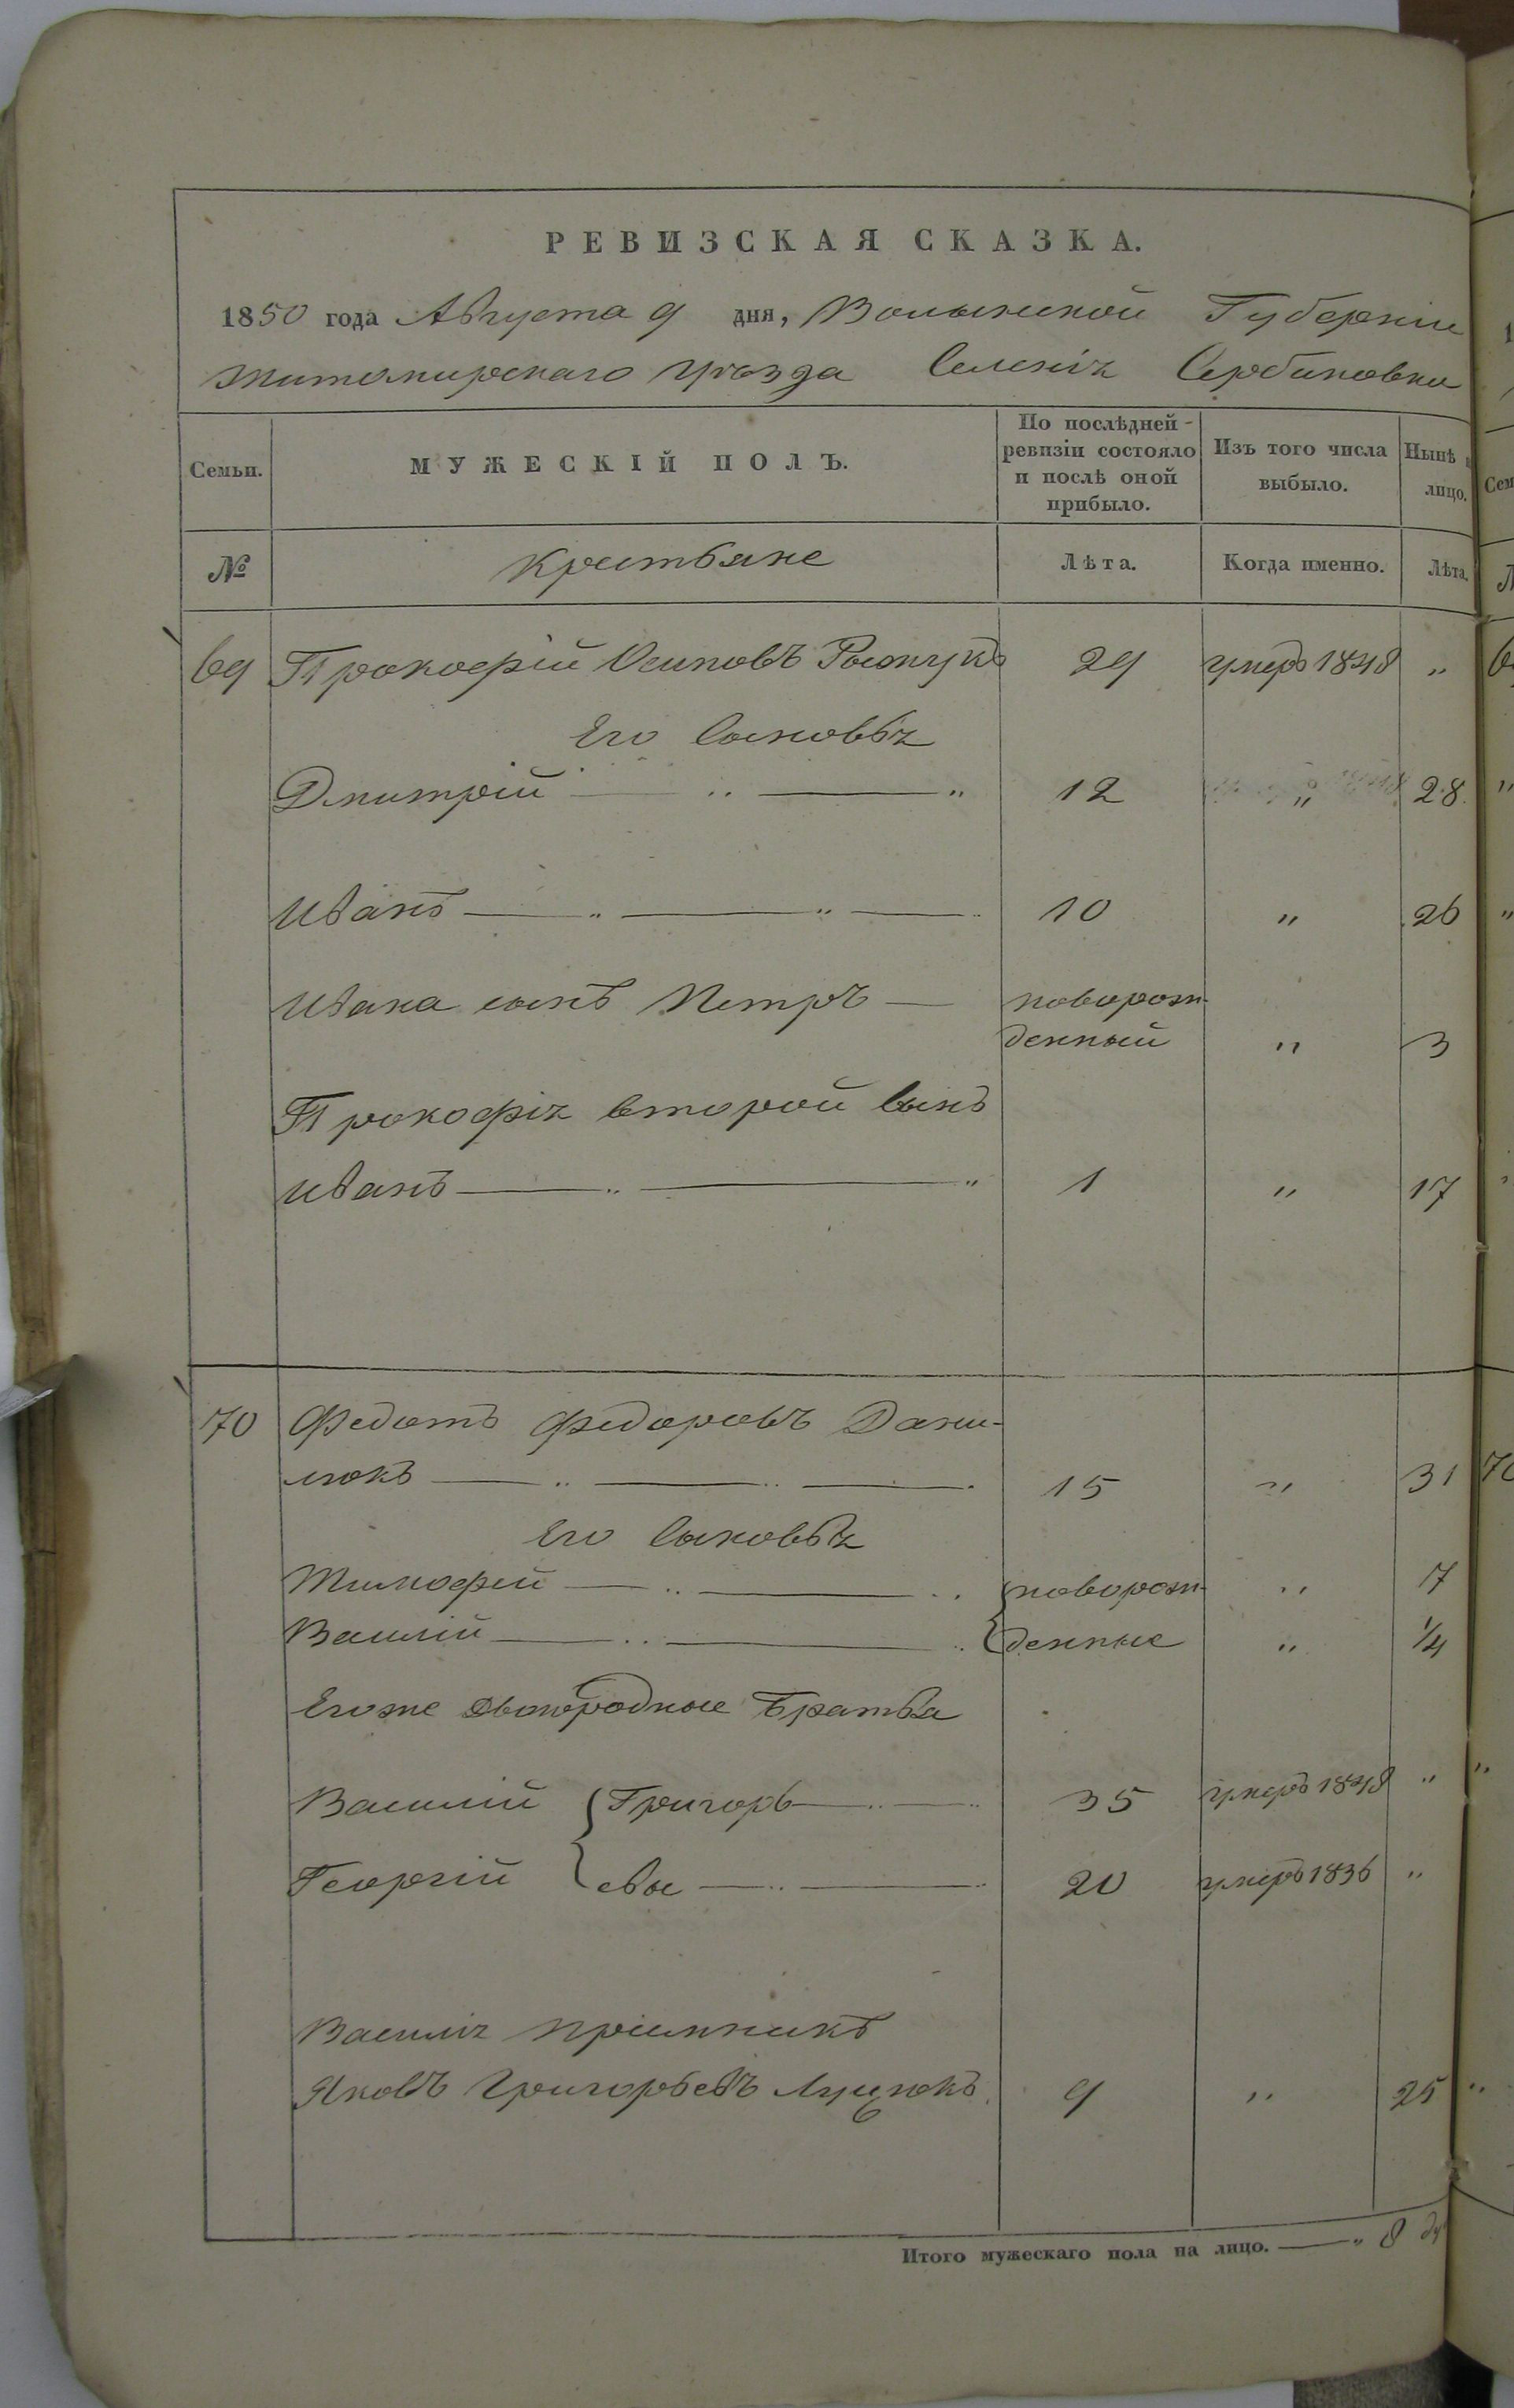 РЕВИЗСКАЯ СКАЗКА.
1850 года Августа 9 дня, Волынской Губерніи
Житомирскаго уѣзда Селенія Сербиновки
Семьи. МУЖЕСКІЙ ПОЛЪ. По послѣдней ревизіи состояло и послѣ оной прибыло. Изъ того числа выбыло. Нынѣ лицо.
№ Крестьяне Лѣта. Когда именно. Лѣта.
69 Прокофій Осиповъ 29 умеръ 1848 "
Его Сыновья
Дмитрій " 12 " 28
Иванъ " 10 " 26
Ивана сынъ Петръ новорож-
денный " 3
Прокофія второй сынъ
Иванъ " 1 " 17
70 Федотъ Федоровъ Дани-
люкъ 15 " 31
Его Сыновья
Тимофей новорож- " 7
Василій денные " 1/4
Егоже двоюродные Братья
Василій Григорь- 35 умеръ 1848 "
Георгій евы 20 умеръ 1836 "
Василія пріимникъ
Яковъ Григорьевъ Луцюкъ 9 " 25
Итого мужескаго пола на лицо. " 8